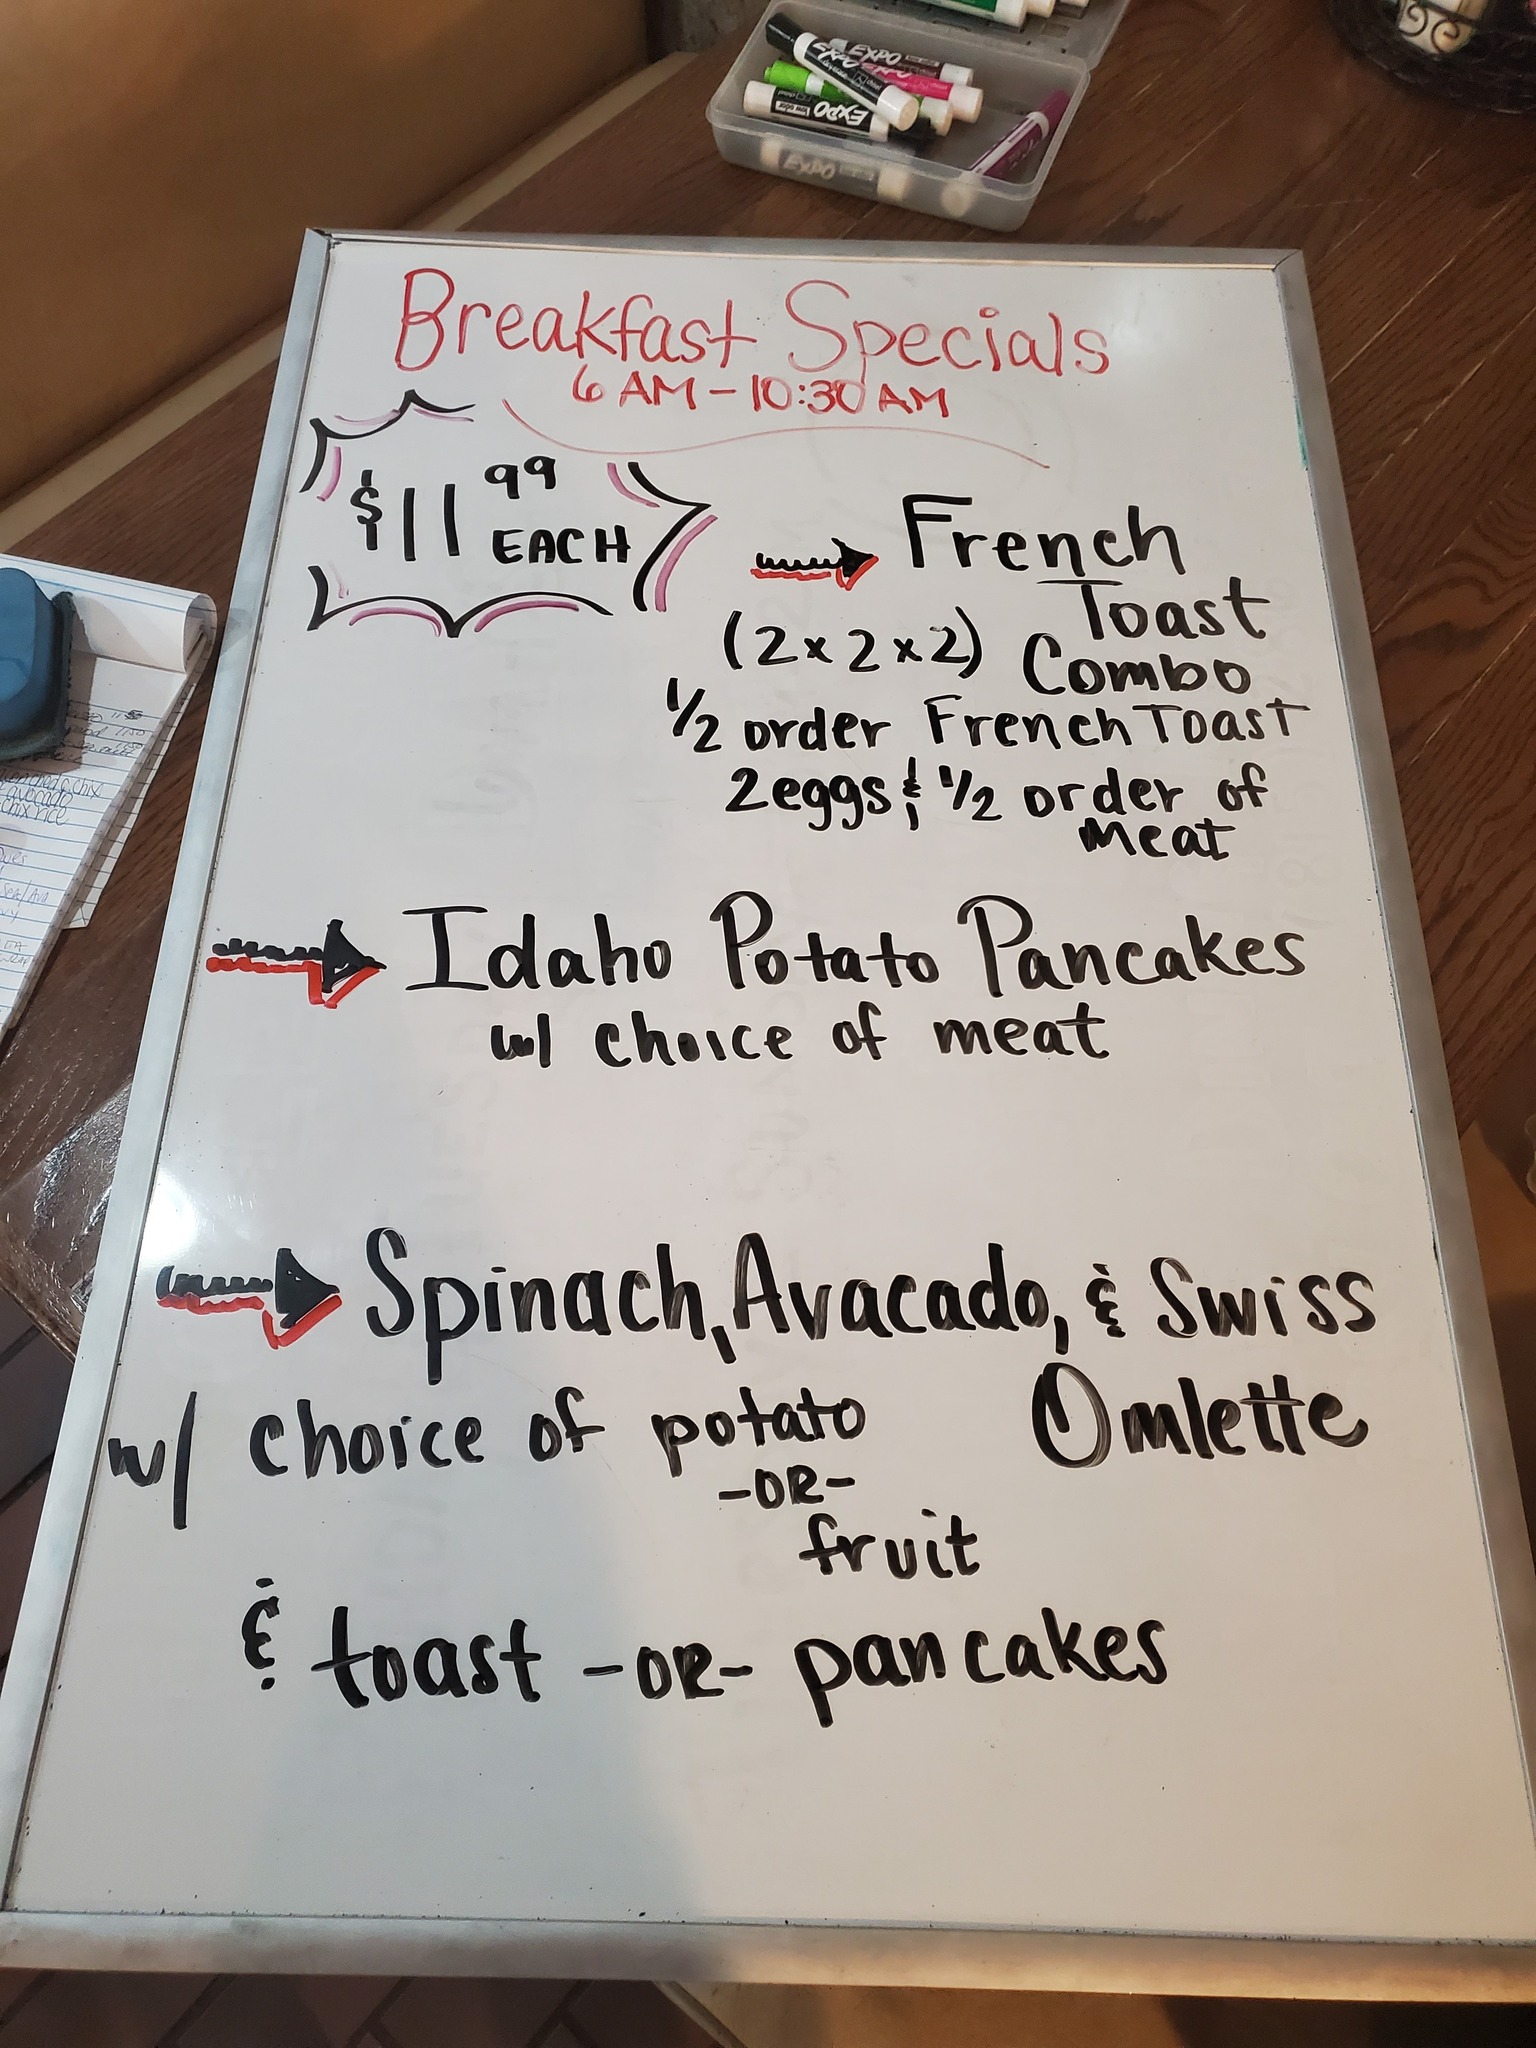 Breakfast Specials
6 AM - 10:30 AM
$11 99
EACH
French
Toast
(2x2x2) Combo
1/2 order French Toast
2 eggs & 1/2 order of
Meat
Idaho Potato Pancakes
w/ choice of meat
Spinach, Avacado, & Swiss
Omlette
w/ choice of potato
-OR-
fruit
& toast -OR- pancakes
EXPO
EXPO
EXPO
low odor EXPO
EXPO
avocado